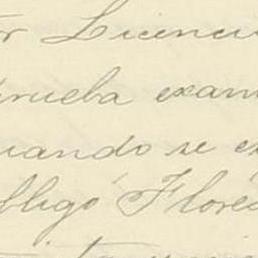 or Licenci
prueba exam
uando se e
bligó Flores